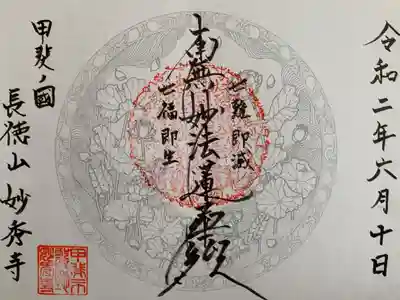 令和二年六月十日
七難即滅
南無妙法蓮華経
七福即生
甲斐ノ國
長徳山 妙秀寺